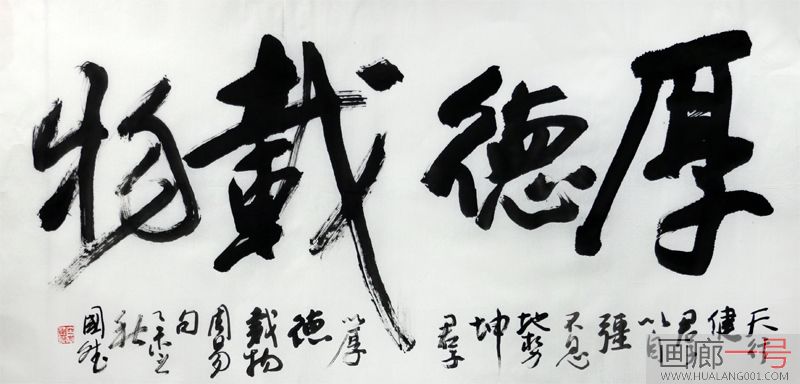 厚德載物
天行
健
君子
以自
强
不息
地势
坤
君子
以厚
德
載物
周易
句
乙未之
秋
國
画廊一号
WWW.HUALANG001.COM